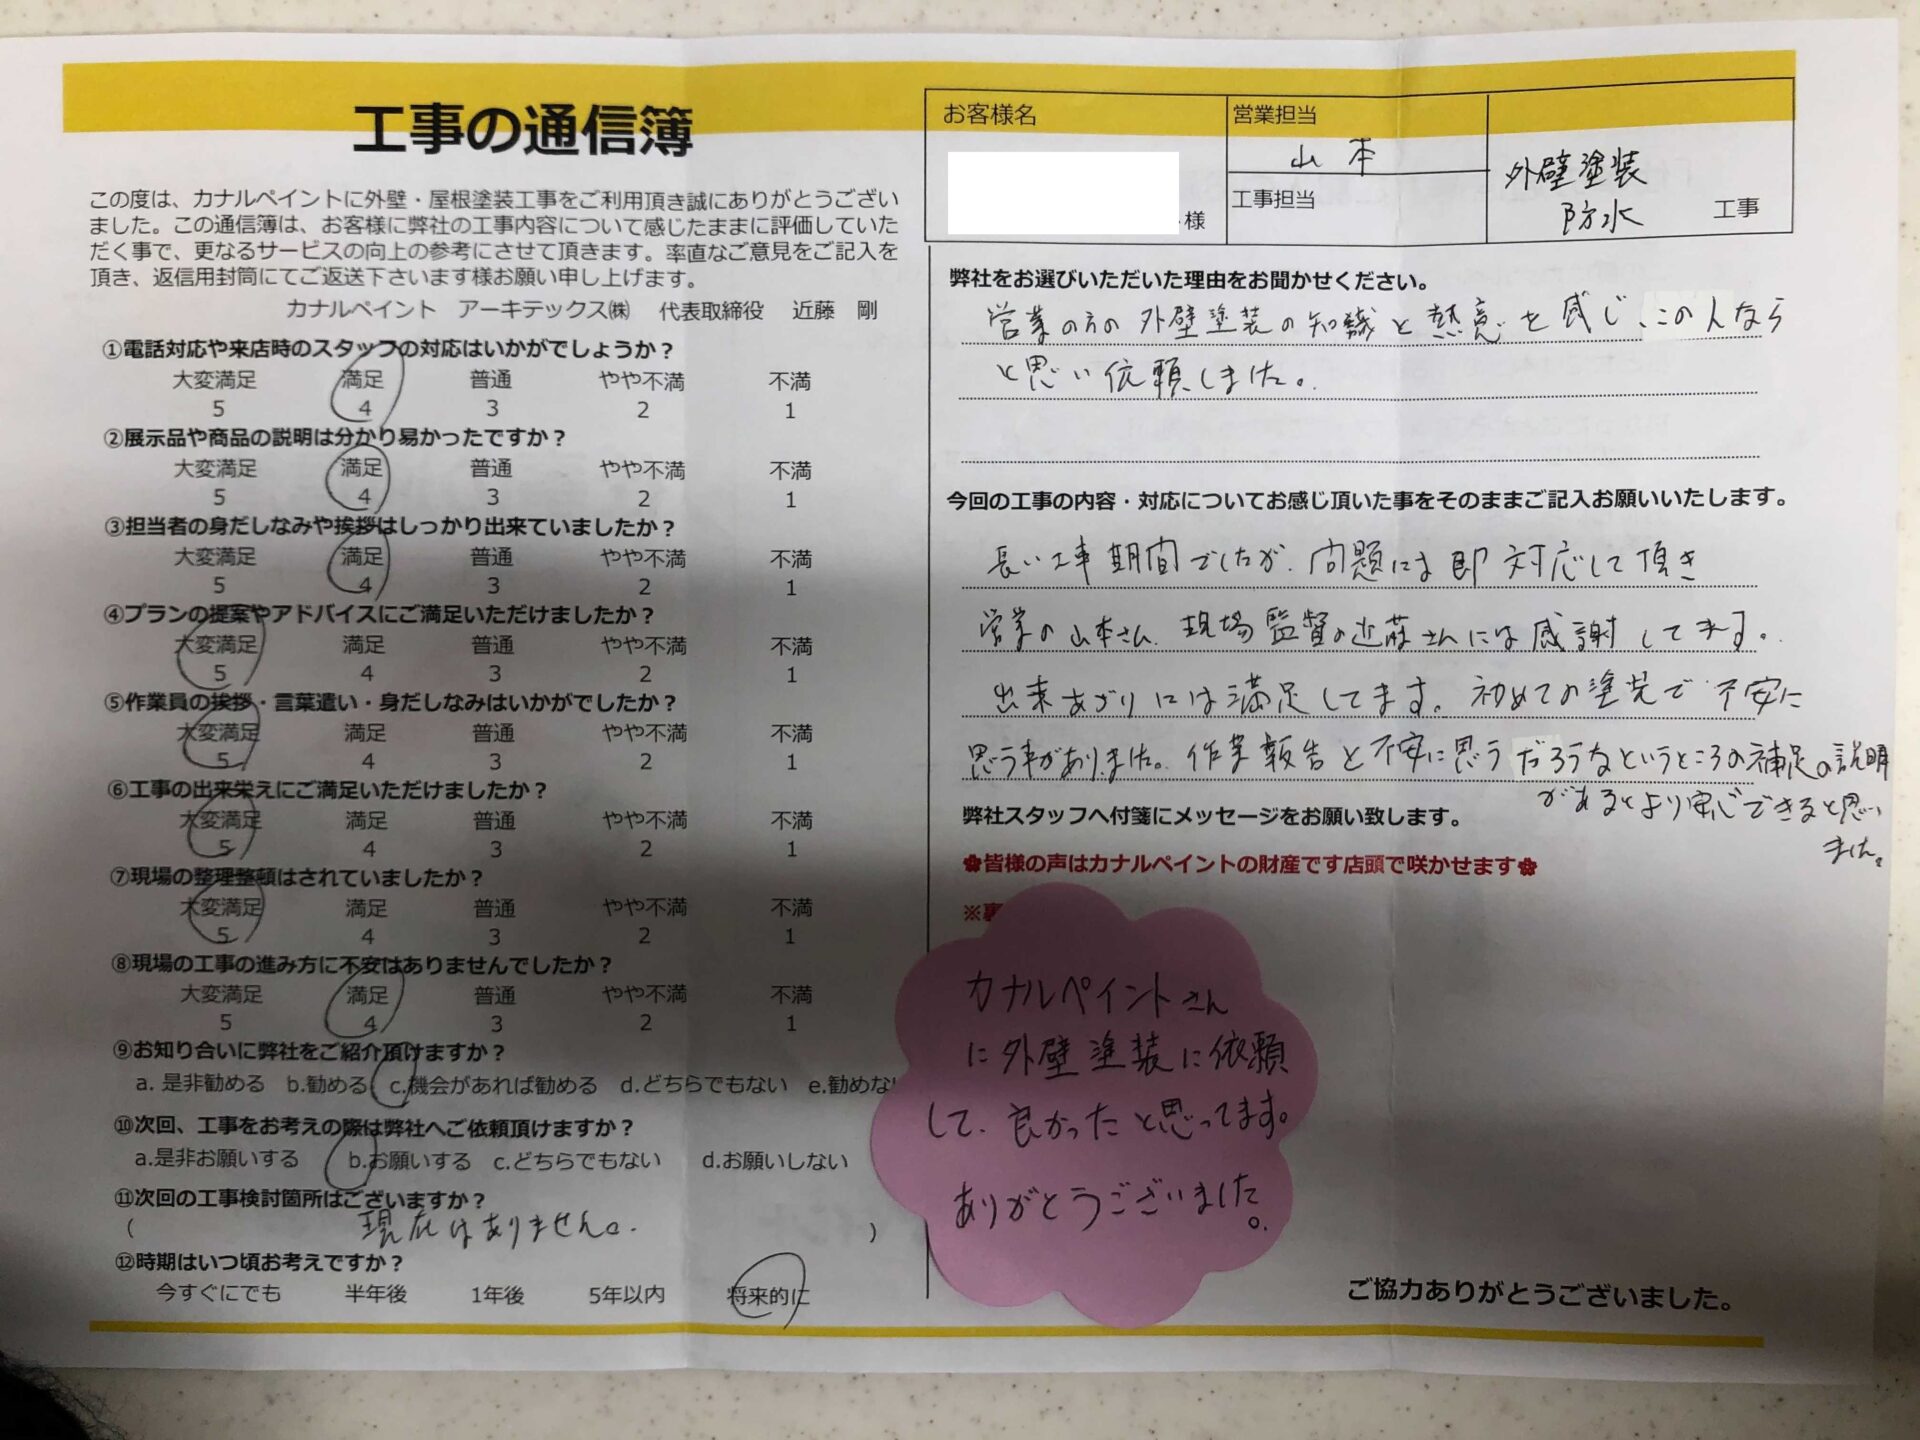 工事の通信簿
この度は、カナルペイントに外壁・屋根塗装工事をご利用頂き誠にありがとうござい
ました。この通信簿は、お客様に弊社の工事内容について感じたままに評価していた
だく事で、更なるサービスの向上の参考にさせて頂きます。率直なご意見をご記入を
頂き、返信用封筒にてご返送下さいます様お願い申し上げます。
カナルペイント アーキテックス㈱ 代表取締役 近藤 剛
①電話対応や来店時のスタッフの対応はいかがでしょうか？
大変満足 満足 普通 やや不満 不満
5 4 3 2 1
②展示品や商品の説明は分かり易かったですか？
大変満足 満足 普通 やや不満 不満
5 4 3 2 1
③担当者の身だしなみや挨拶はしっかり出来ていましたか？
大変満足 満足 普通 やや不満 不満
5 4 3 2 1
④プランの提案やアドバイスにご満足いただけましたか？
大変満足 満足 普通 やや不満 不満
5 4 3 2 1
⑤作業員の挨拶・言葉遣い・身だしなみはいかがでしたか？
大変満足 満足 普通 やや不満 不満
5 4 3 2 1
⑥工事の出来栄えにご満足いただけましたか？
大変満足 満足 普通 やや不満 不満
5 4 3 2 1
⑦現場の整理整頓はされていましたか？
大変満足 満足 普通 やや不満 不満
5 4 3 2 1
⑧現場の工事の進み方に不安はありませんでしたか？
大変満足 満足 普通 やや不満 不満
5 4 3 2 1
⑨お知り合いに弊社をご紹介頂けますか？
a. 是非勧める b.勧める c.機会があれば勧める d.どちらでもない e.勧めない
⑩次回、工事をお考えの際は弊社へご依頼頂けますか？
a.是非お願いする b.お願いする c.どちらでもない d.お願いしない
⑪次回の工事検討箇所はございますか？
( 現在はありません。 )
⑫時期はいつ頃お考えですか？
今すぐにでも 半年後 1年後 5年以内 将来的に
お客様名
様
営業担当
山本
工事担当
外壁塗装
防水 工事
弊社をお選びいただいた理由をお聞かせください。
営業の方の外壁塗装の知識と熱意を感じ、この人なら
と思い依頼しました。
今回の工事の内容・対応についてお感じ頂いた事をそのままご記入お願いいたします。
長い工事期間でしたが、問題には即対応して頂き
営業の山本さん、現場監督の近藤さんには感謝してます。
出来あがりには満足してます。初めての塗装で不安に
思う事がありました。作業報告と不安に思うだろうなというところの補足の説明
があるとより安心できると思い
ました。
弊社スタッフへ付箋にメッセージをお願い致します。
✿皆様の声はカナルペイントの財産です店頭で咲かせます✿
※裏
カナルペイントさん
に外壁塗装に依頼
して、良かったと思ってます。
ありがとうございました。
ご協力ありがとうございました。